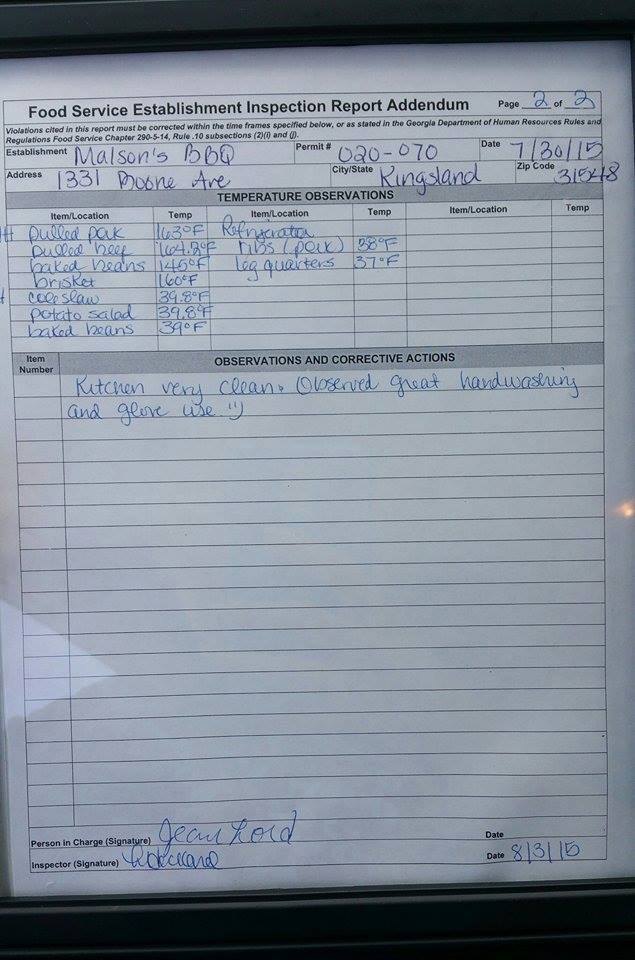 Food Service Establishment Inspection Report Addendum Page 2 of 2
Violations cited in this report must be corrected within the time frames specified below, or as stated in the Georgia Department of Human Resources Rules and
Regulations Food Service Chapter 290-5-14, Rule .10 subsections (2)(i) and (j).
Establishment Malson's BBQ Permit # 020-070 Date 7/30/15
Address 1331 Boone Ave City/State Kingsland Zip Code 31548
TEMPERATURE OBSERVATIONS
Item/Location Temp Item/Location Temp Item/Location Temp
pulled pork 163°F Refrigerator
pulled beef 164.2°F ribs (pork) 38°F
baked beans 145°F leg quarters 37°F
brisket 160°F
coleslaw 39.8°F
potato salad 39.8°F
baked beans 39°F
Item Number OBSERVATIONS AND CORRECTIVE ACTIONS
Kitchen very clean. Observed great handwashing
and glove use :)
Person in Charge (Signature) Jean Lord Date
Inspector (Signature) Date 8/3/15